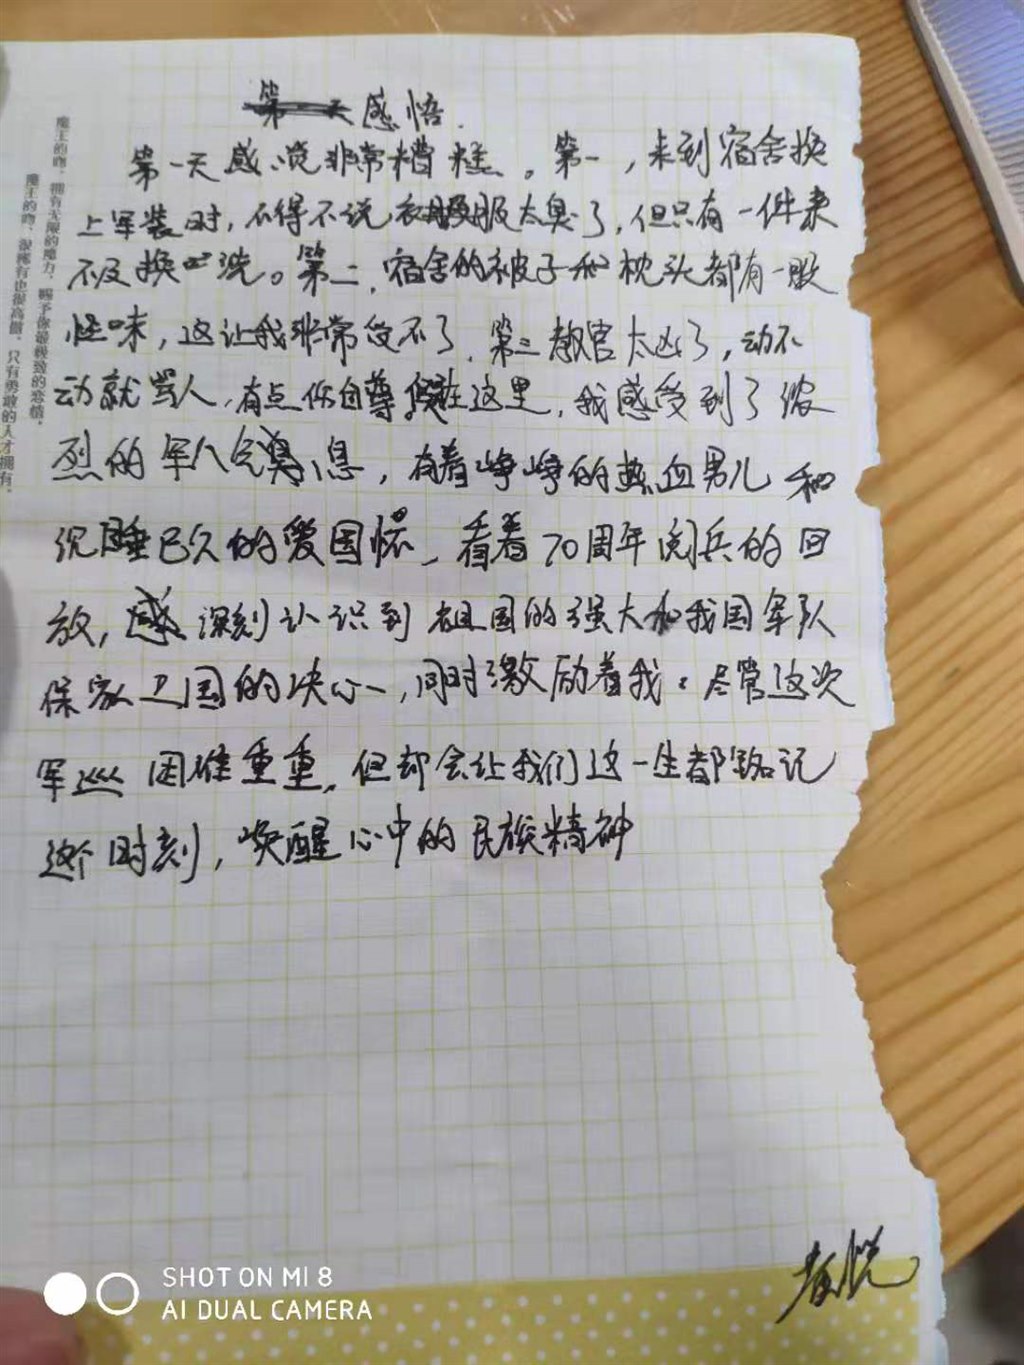 感悟.
第一天感觉非常糟糕。第一,来到宿舍换
上军装时,不得不说衣服太臭了,但只有一件来
不及换 洗。第二,宿舍的被子和枕头都有一股
怪味,这让我非常受不了.第三教官太凶了,动不
动就骂人,有点伤自尊 在这里,我感受到了浓
烈的军人气息,有着峥峥的热血男儿和
沉睡已久的爱国情,看着70周年阅兵的回
放,深刻认识到祖国的强大和我国军队
保家卫国的决心,同时激励着我。尽管这次
军巡困难重重,但却会让我们这一生都铭记
这个时刻,唤醒心中的民族精神
魔王的吻,拥有无限的魔力,赐予你最极致的恋情,
魔王的吻,很稀有也很高傲,只有勇敢的人才拥有,
SHOT ON MI 8
AI DUAL CAMERA